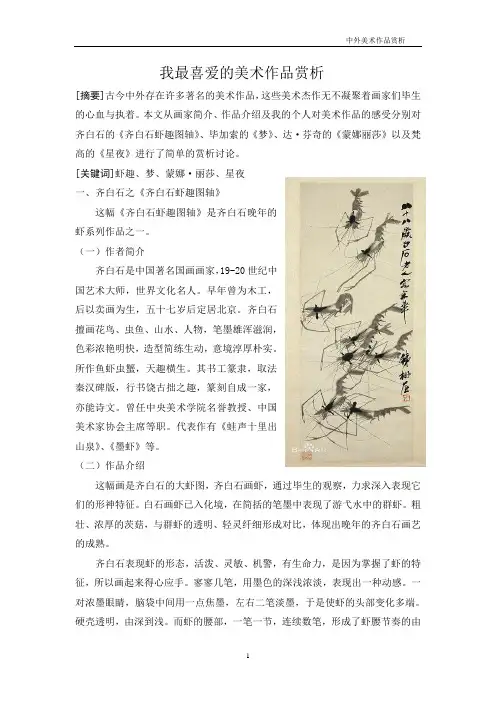 中外美术作品赏析
我最喜爱的美术作品赏析
[摘要]古今中外存在许多著名的美术作品，这些美术杰作无不凝聚着画家们毕生
的心血与执着。本文从画家简介、作品介绍及我的个人对美术作品的感受分别对
齐白石的《齐白石虾趣图轴》、毕加索的《梦》、达·芬奇的《蒙娜丽莎》以及梵
高的《星夜》进行了简单的赏析讨论。
[关键词]虾趣、梦、蒙娜·丽莎、星夜
一、齐白石之《齐白石虾趣图轴》
这幅《齐白石虾趣图轴》是齐白石晚年的
虾系列作品之一。
（一）作者简介
齐白石是中国著名国画画家,19-20世纪中
国艺术大师，世界文化名人。早年曾为木工，
后以卖画为生，五十七岁后定居北京。齐白石
擅画花鸟、虫鱼、山水、人物，笔墨雄浑滋润，
色彩浓艳明快，造型简练生动，意境淳厚朴实。
所作鱼虾虫蟹，天趣横生。其书工篆隶，取法
秦汉碑版，行书饶古拙之趣，篆刻自成一家，
亦能诗文。曾任中央美术学院名誉教授、中国
美术家协会主席等职。代表作有《蛙声十里出
山泉》、《墨虾》等。
（二）作品介绍
这幅画是齐白石的大虾图，齐白石画虾，通过毕生的观察，力求深入表现它
们的形神特征。白石画虾已入化境，在简括的笔墨中表现了游弋水中的群虾。粗
壮、浓厚的茨菇，与群虾的透明、轻灵纤细形成对比，体现出晚年的齐白石画艺
的成熟。
齐白石表现虾的形态，活泼、灵敏、机警，有生命力，是因为掌握了虾的特
征，所以画起来得心应手。寥寥几笔，用墨色的深浅浓淡，表现出一种动感。一
对浓墨眼睛，脑袋中间用一点焦墨，左右二笔淡墨，于是使虾的头部变化多端。
硬壳透明，由深到浅。而虾的腰部，一笔一节，连续数笔，形成了虾腰节奏的由
1